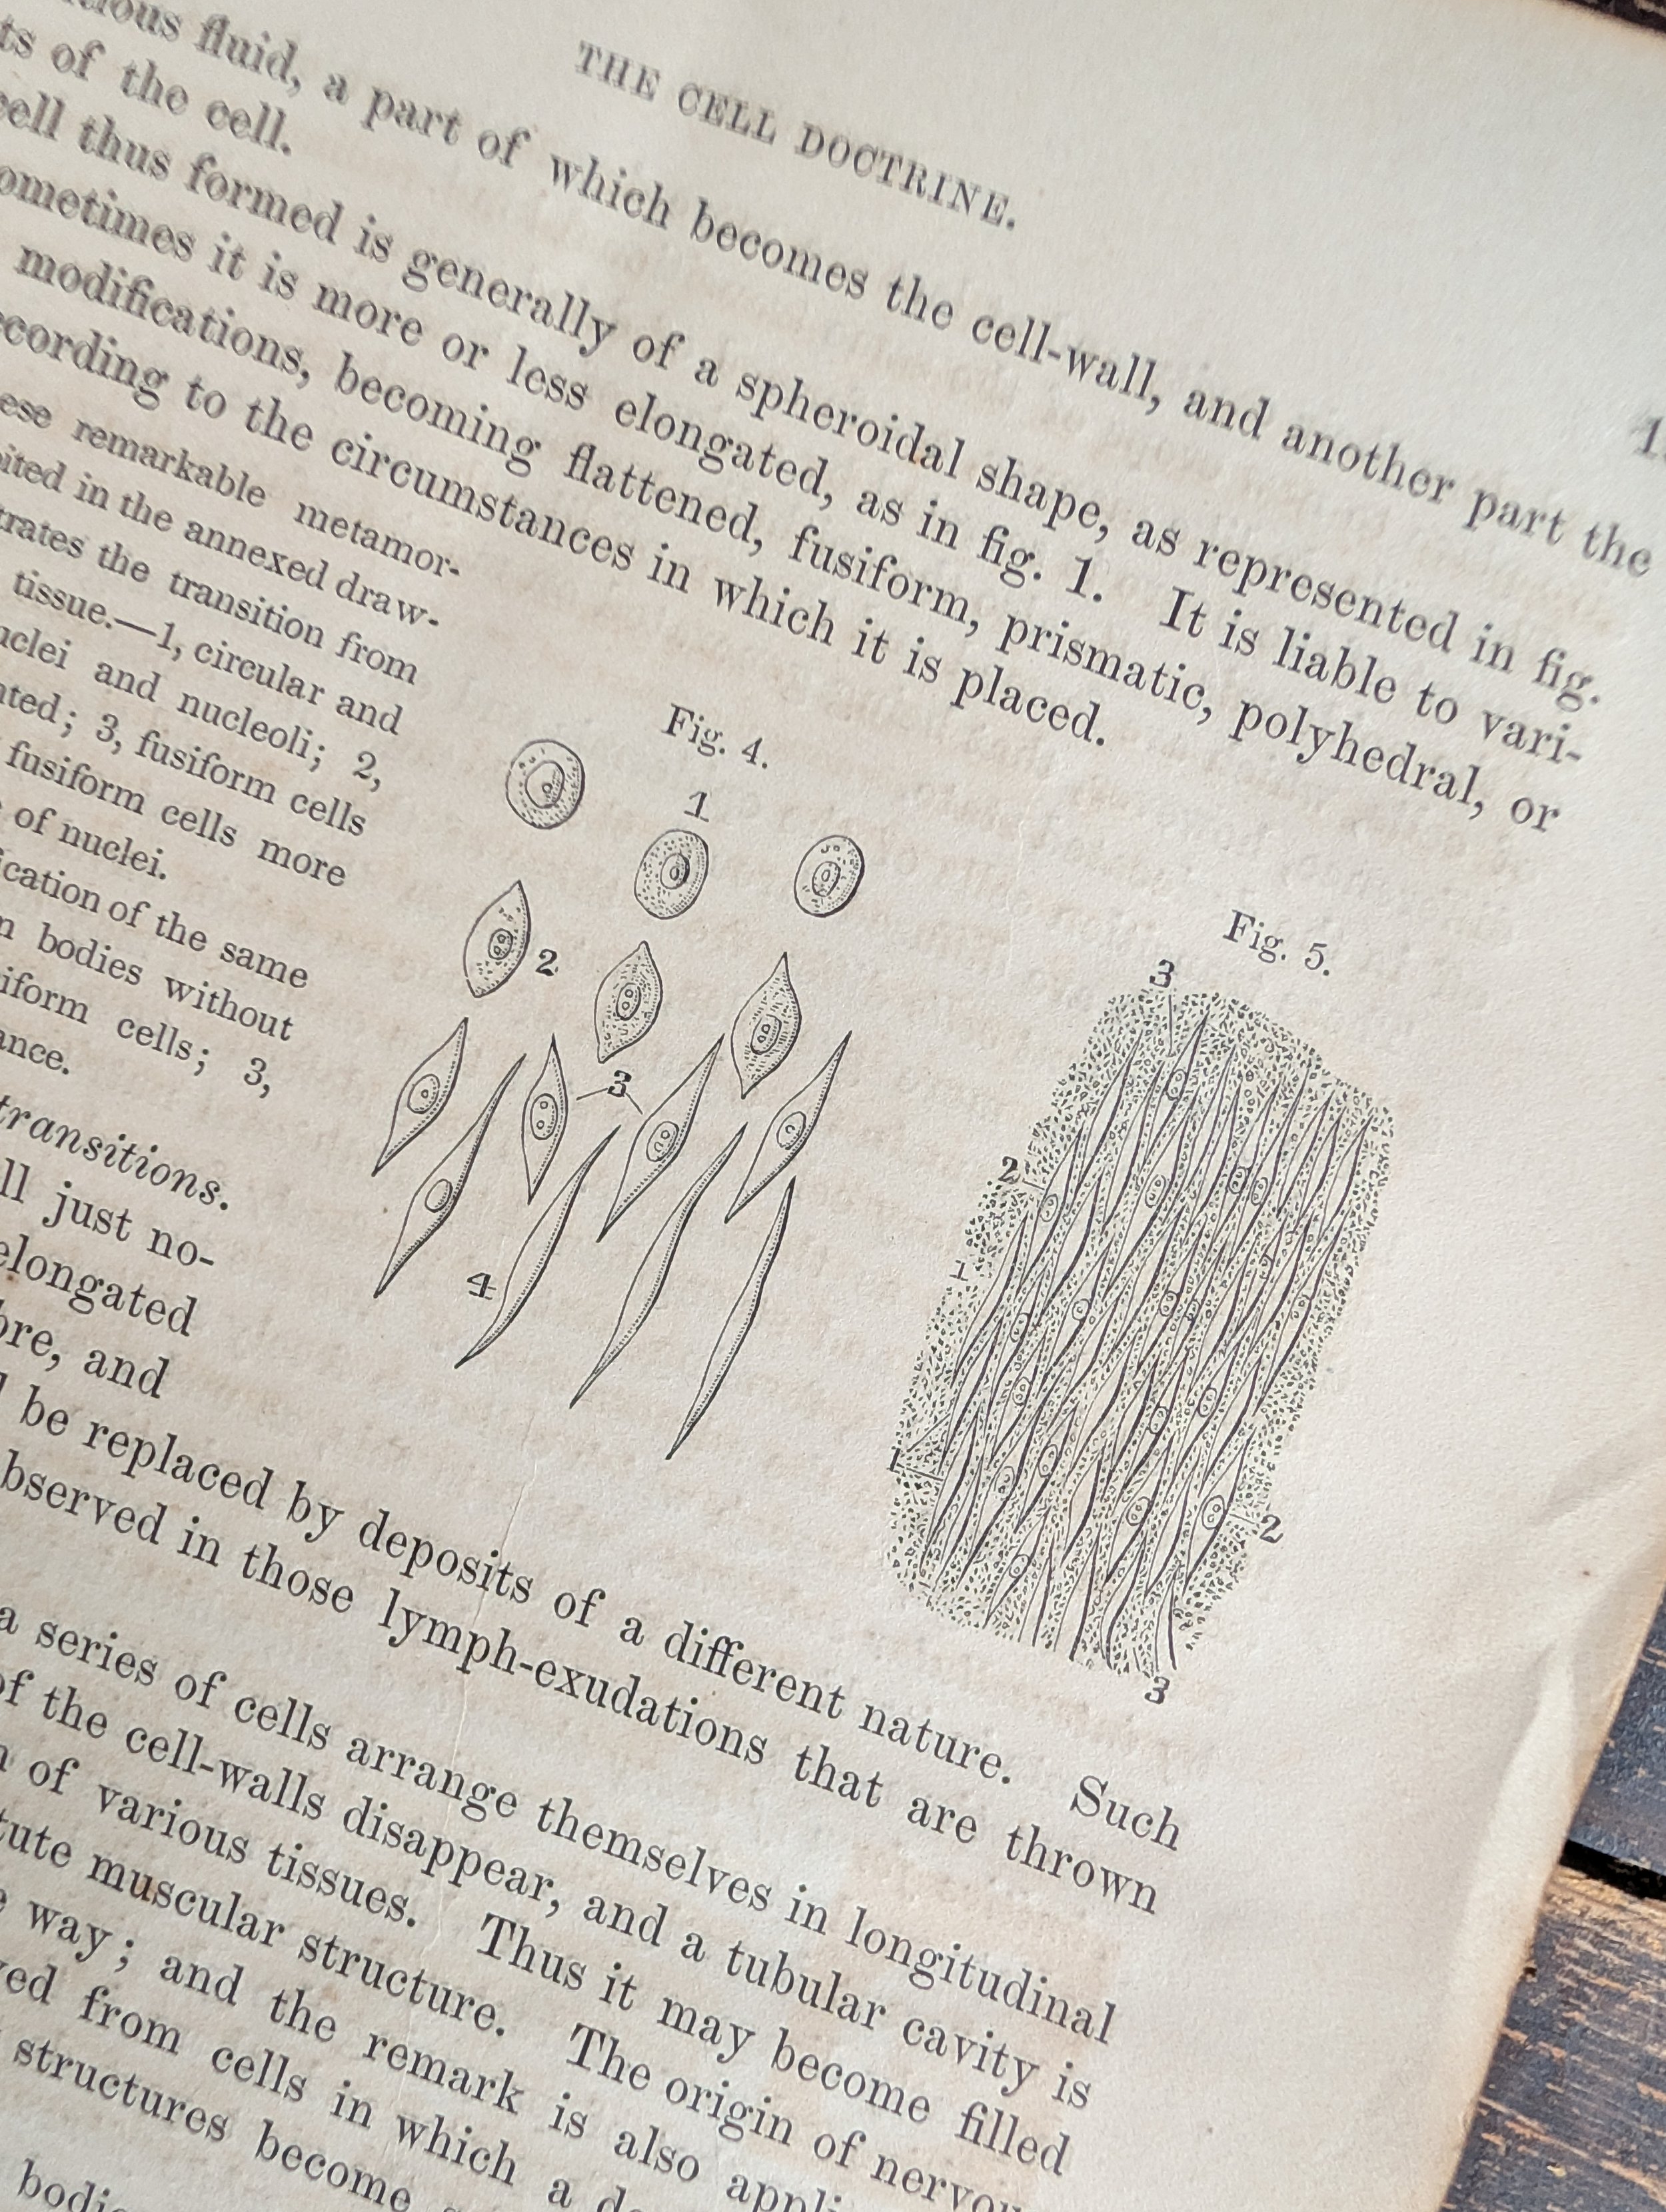 THE CELL DOCTRINE.
fluid, a part of which becomes the cell-wall, and another part the
ts of the cell.
cell thus formed is generally of a spheroidal shape, as represented in fig.
ometimes it is more or less elongated, as in fig. 1. It is liable to vari-
modifications, becoming flattened, fusiform, prismatic, polyhedral, or
ccording to the circumstances in which it is placed.
ese remarkable metamor-
ited in the annexed draw-
trates the transition from
tissue.—1, circular and
nuclei and nucleoli; 2,
nted; 3, fusiform cells
fusiform cells more
of nuclei.
ication of the same
bodies without
iform cells; 3,
ance.
transitions.
ll just no-
elongated
bre, and
Fig. 4.
1
2
3
4
Fig. 5.
3
2
1
1
2
3
be replaced by deposits of a different nature. Such
bserved in those lymph-exudations that are thrown
a series of cells arrange themselves in longitudinal
of the cell-walls disappear, and a tubular cavity is
of various tissues. Thus it may become filled
tute muscular structure. The origin of nervou
way; and the remark is also appli
ved from cells in which a de
structures become
bodie